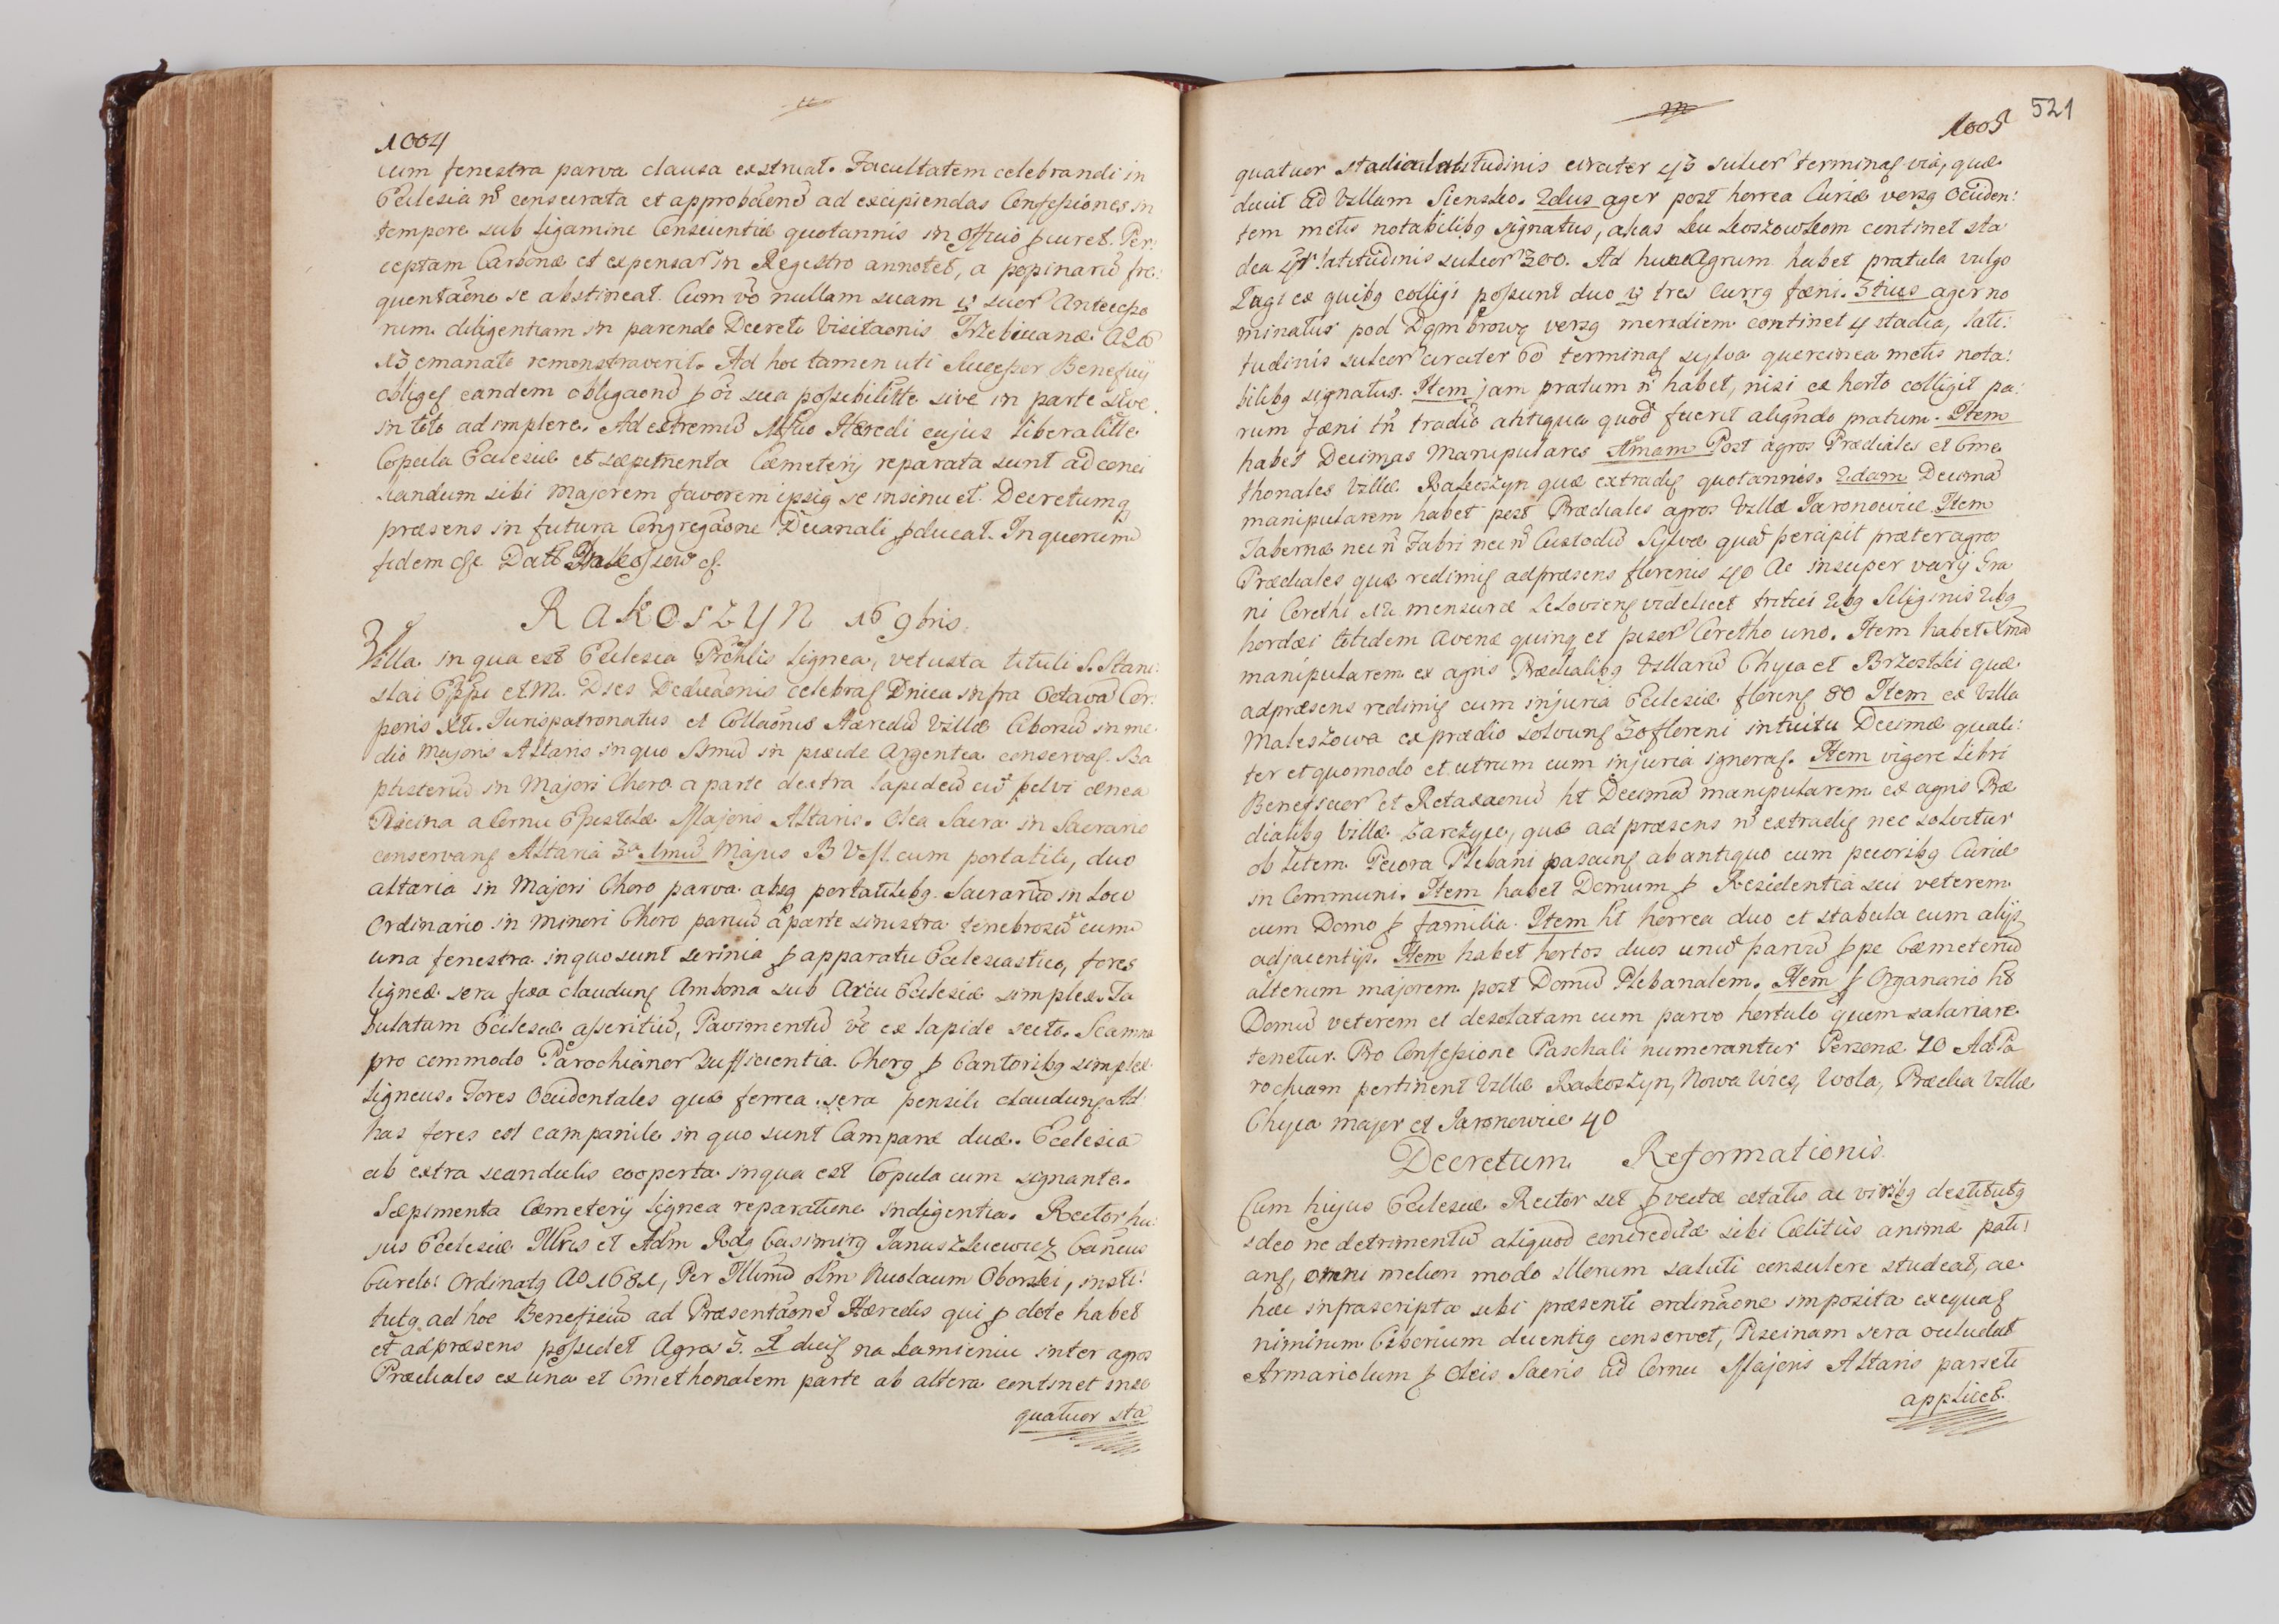 1004
cum fenestra parva clausa exstruat. Facultatem celebrandi in
Ecclesia n̄ consecrata et approbãonẽ ad excipiendas Confessiones in
tempore sub ligamine Conscientiæ quotannis in Officio ꝑcuret. Per:
ceptam Carbonæ et expensar in Regestro annotet, a popinariũ fre:
quentãone se abstineat. Cum vo nullam suam suor Antecesso
rum diligentiam in parendo Decreto Visitaonis Trzebicianæ
13 emanato remonstraverit. Ad hoc tamen uti Successor Beneficij
obliges eandem obligaonẽ ꝑ sua possibilitte sive in parte sive
in toto adimplere. Ad extremũ Heredi cujus liberalitte
Copula Ecclesiæ et sæpimenta Cæmeterij reparata sunt ad conci
liandum sibi Majorem favorem ipsiq se insinuet. Decretumq
præsens in futura Congregãone Decanali ꝑducat. In quorum
fidem Datt
RAKOSZYN 16 9bris.
Villa in qua est Ecclesia Prchlis lignea, vetusta tituli S. Stani:
slai Eppi et M. Dies Dedicãonis celebraꝭ Dnica infra Octavã Cor:
poris Xti. Jurispatronatus et Collaonis Hæredũ Villæ Ciboriũ in me
dio Majoris Altaris in quo Ssmũ in pixide Argentea conservaꝭ. Ba
ptisteriũ in Majori Choro a parte dextra lapideũ cũ pelvi ænea
Piscina a Cornu Epistolæ Majoris Altaris. Olea Sacra in Sacrario
conservanꝭ Altaria 3a 1mũ Majus B V cum portatili, duo
altaria in Majori Choro parva absq portatilibq. Sacrariũ in Loco
Ordinario in Minori Choro parvũ a parte sinistra tenebrosũ cum
una fenestra in quo sunt scrinia ꝑ apparatu Ecclesiastico, fores
ligneæ sera fixa claudunꝭ Ambona sub Arcu Ecclesiæ simplex. Ta
bulatum Ecclesiæ asseritiũ, Pavimentũ vo ex lapide secto. Scamna
pro commodo Parochianor sufficientia. Chorq ꝑ Cantoribq simplex
ligneus. Fores Occidentales quæ ferrea sera pensili claudunꝭ. Ad
has fores est campanile in quo sunt Campanæ duæ. Ecclesia
ab extra scandulis cooperta in qua est Copula cum signante.
Sæpimenta Cæmeterij lignea reparatione indigentia. Rector hu:
jus Ecclesiæ Illris et Adm Rdq Casimirq Januszkiewicz Cãncus
Curelo: Ordinatq Ao 1681, Per Illimũ olim Nicolaum Oborski, insti:
tutq ad hoc Beneficiũ ad Præsentãonẽ Hæredis qui ꝑ dote habet
et ad præsens possidet Agros 3. 1 diciꝭ na Kamieniu inter agros
Prædiales ex una et Cmethonalem parte ab altera continet in se
quatuor sta
521
1005
quatuor stadia latitudinis circiter 43 sulcor terminaꝭ via, quæ
ducit ad Villam Siensko. 2dus ager post horrea Curiæ versq Occiden:
tem metis notabilibq signatus, alias ku koszowkom continet sta
dia 4 latitudinis sulcor 300. Ad hunc Agrum habet pratula vulgo
Łągi ex quibq colligi possunt duo tres currq fœni. 3tius ager no
minatus pod Dąmbrową versq meridiem continet 4 stadia, lati:
tudinis sulcor circiter 60 terminaꝭ sylva quercinea metis nota:
bilibq signatus. Item jam pratum n̄ habet, nisi ex horto colligit pa:
rum fœni tn̄ traditio antiqua quod fuerit aliqũdo pratum. Item
habet Decimas Manipulares 1mam Post agros Prædiales et Cme
thonales Villæ Rakoszyn quæ extradiꝭ quotannis. 2dam Decimã
manipularem habet post Prædiales agros Villæ Jaronowice Item
Tabernæ nec n̄ Fabri nec n̄ Custodis Sylvæ quæ percipit præter agros
Prædiales quæ redimiꝭ ad præsens florenis 40 Ac insuper varij Gra
ni Corethi 12 mensuræ Lelovienꝭ videlicet tritici 2bq Siliginis 2bq
hordei totidem avenæ quinq et pisor Coretho uno. Item habet Xmã
manipularem ex agris Prædialibq Villarũ Chyca et Brzostki quæ
ad præsens redimiꝭ cum injuria Ecclesiæ florenꝭ 80 Item ex Villa
Maleszowa ex prædio solvunꝭ 30 floreni intuitu Decimæ quali:
ter et quomodo et utrum cum injuria ignoraꝭ. Item vigore Libri
Beneficior et Retaxaonũ ht Decimã manipularem ex agris Præ
dialibq Villæ Zarczyce, quæ ad præsens n̄ extradiꝭ nec solvitur
ob litem. Pecora Plebani pascunꝭ ab antiquo cum pecoribq Curiæ
in Communi. Item habet Domum ꝑ Residentia sui veterem
cum Domo ꝑ familia. Item ht horrea duo et stabula cum alijs
adjacentijs. Item habet hortos duos unũ parvũ ꝓpe Cæmeteriũ
alterum majorem post Domũ Plebanalem. Item ꝑ Organario ht
Domũ veterem et desolatam cum parvo hortulo quem salariare
tenetur. Pro Confessione Paschali numerantur Personæ 70 Ad Pa
rochiam pertinent Villæ Rakoszyn, Nowa Wies, Wola, Prædia Villæ
Chyca major et Jaronowice 40
Decretum Reformationis.
Cum hujus Ecclesiæ Rector sit ꝓvectæ ætatis ac viribq destitutq
ideo ne detrimentũ aliquod concreditæ sibi Cælitus animæ pati:
anꝭ, omni meliori modo illorum saluti consulere studeat, ac
hæc infrascripta sibi præsenti ordinãone imposita exequaꝭ
nimirum Ciborium ducentiq conservet, Piscinam sera occludat
Armariolum ꝑ Oleis Sacris ad Cornu Majoris Altaris parieti
applicet.